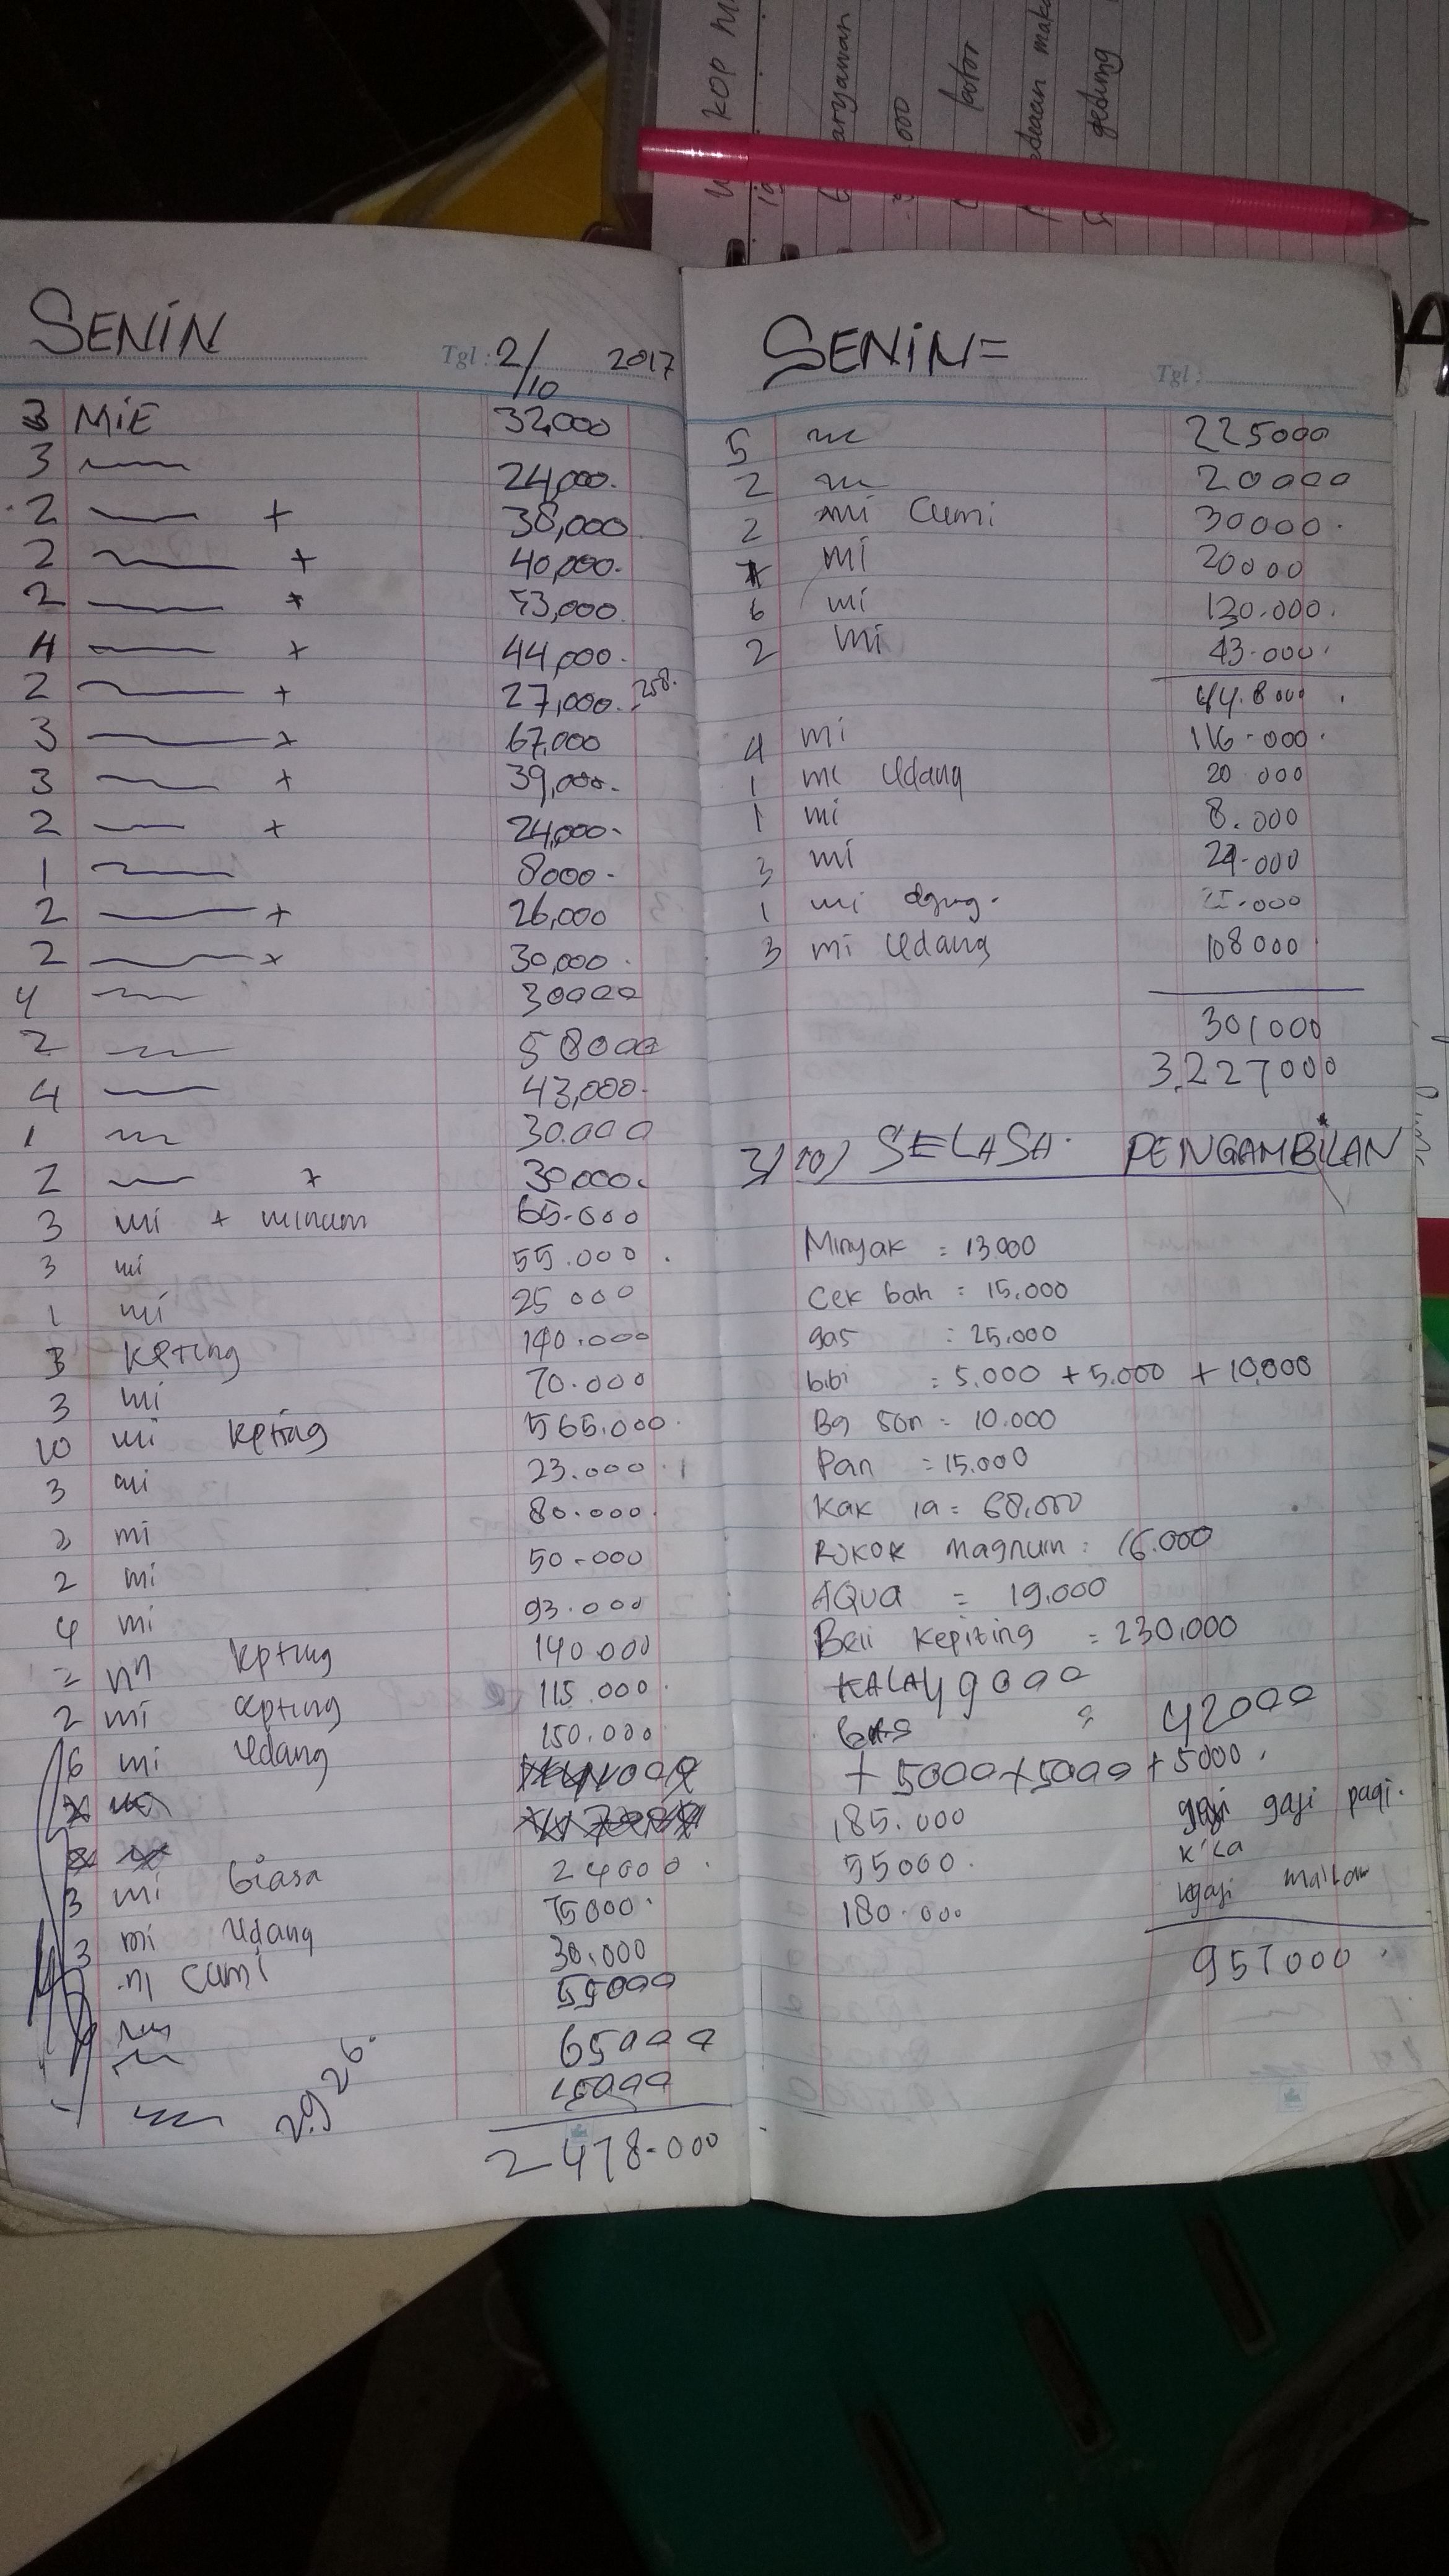 SENIN
Tgl : 2/10 2017
3 MIE 32,000
3 24,000.
2 + 38,000
2 + 40,000.
2 + 53,000.
4 + 44,000.
2 + 27,000. 258.
3 + 67,000
3 + 39,000.
2 + 24,000.
1 8000.
2 + 26,000
2 + 30,000.
4 30000
2 58000
4 43,000.
1 30.000
2 + 30,000.
3 mi + minum 65.000
3 mi 55.000.
1 mi 25 000
3 kpting 140.000
3 mi 70.000
10 mi kpting 565.000.
3 mi 23.000
3 mi 80.000.
2 mi 50.000
4 mi 93.000
kpting 140.000
2 mi kpting 115.000.
6 mi Udang 150.000
3 mi biasa 24000.
3 mi Udang 75000.
mi Cumi 30.000
55000
65000
15000
29 26.
2 478.000
SENIN=
Tgl :
5 225000
2 20000
2 mi Cumi 30000.
mi 20000
6 mi 130.000.
2 mi 43.000.
44.8000.
4 mi 116.000.
1 mi Udang 20.000
1 mi 8.000
3 mi 24.000
1 mi
3 mi Udang 108000
301000
3.227000
3/10) SELASA. PENGAMBILAN
Minyak = 13.000
Cek bah = 15.000
gas = 25.000
bibi = 5.000 + 5.000 + 10.000
Bg Son = 10.000
Pan = 15.000
Kak ia = 68.000
Rokok magnum : 16.000
AQUA = 19.000
Beli Kepiting = 230.000
49000
= 42000
+ 5000 + 5000 + 5000.
185.000 gaji pagi.
55000. k'ka
180.000 gaji malam
957000.
KOP
000
gedung